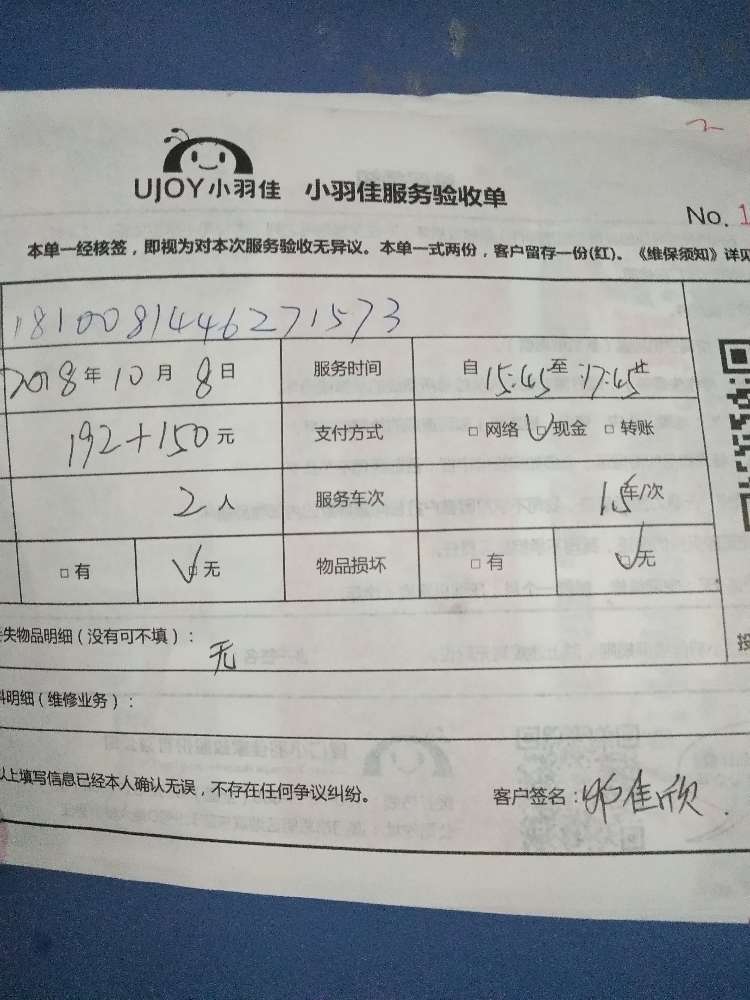 UJOY小羽佳 小羽佳服务验收单
No. 1
本单一经核签，即视为对本次服务验收无异议。本单一式两份，客户留存一份(红)。《维保须知》详见
1810081446271573
2018年10月8日 服务时间 自15:45至17:45止
192+150元 支付方式 □ 网络 ☑现金 □ 转账
2人 服务车次 1.5车/次
□ 有 ☑无 物品损坏 □ 有 ☑无
失物品明细（没有可不填）： 无
料明细（维修业务）：
以上填写信息已经本人确认无误，不存在任何争议纠纷。 客户签名：佳欣